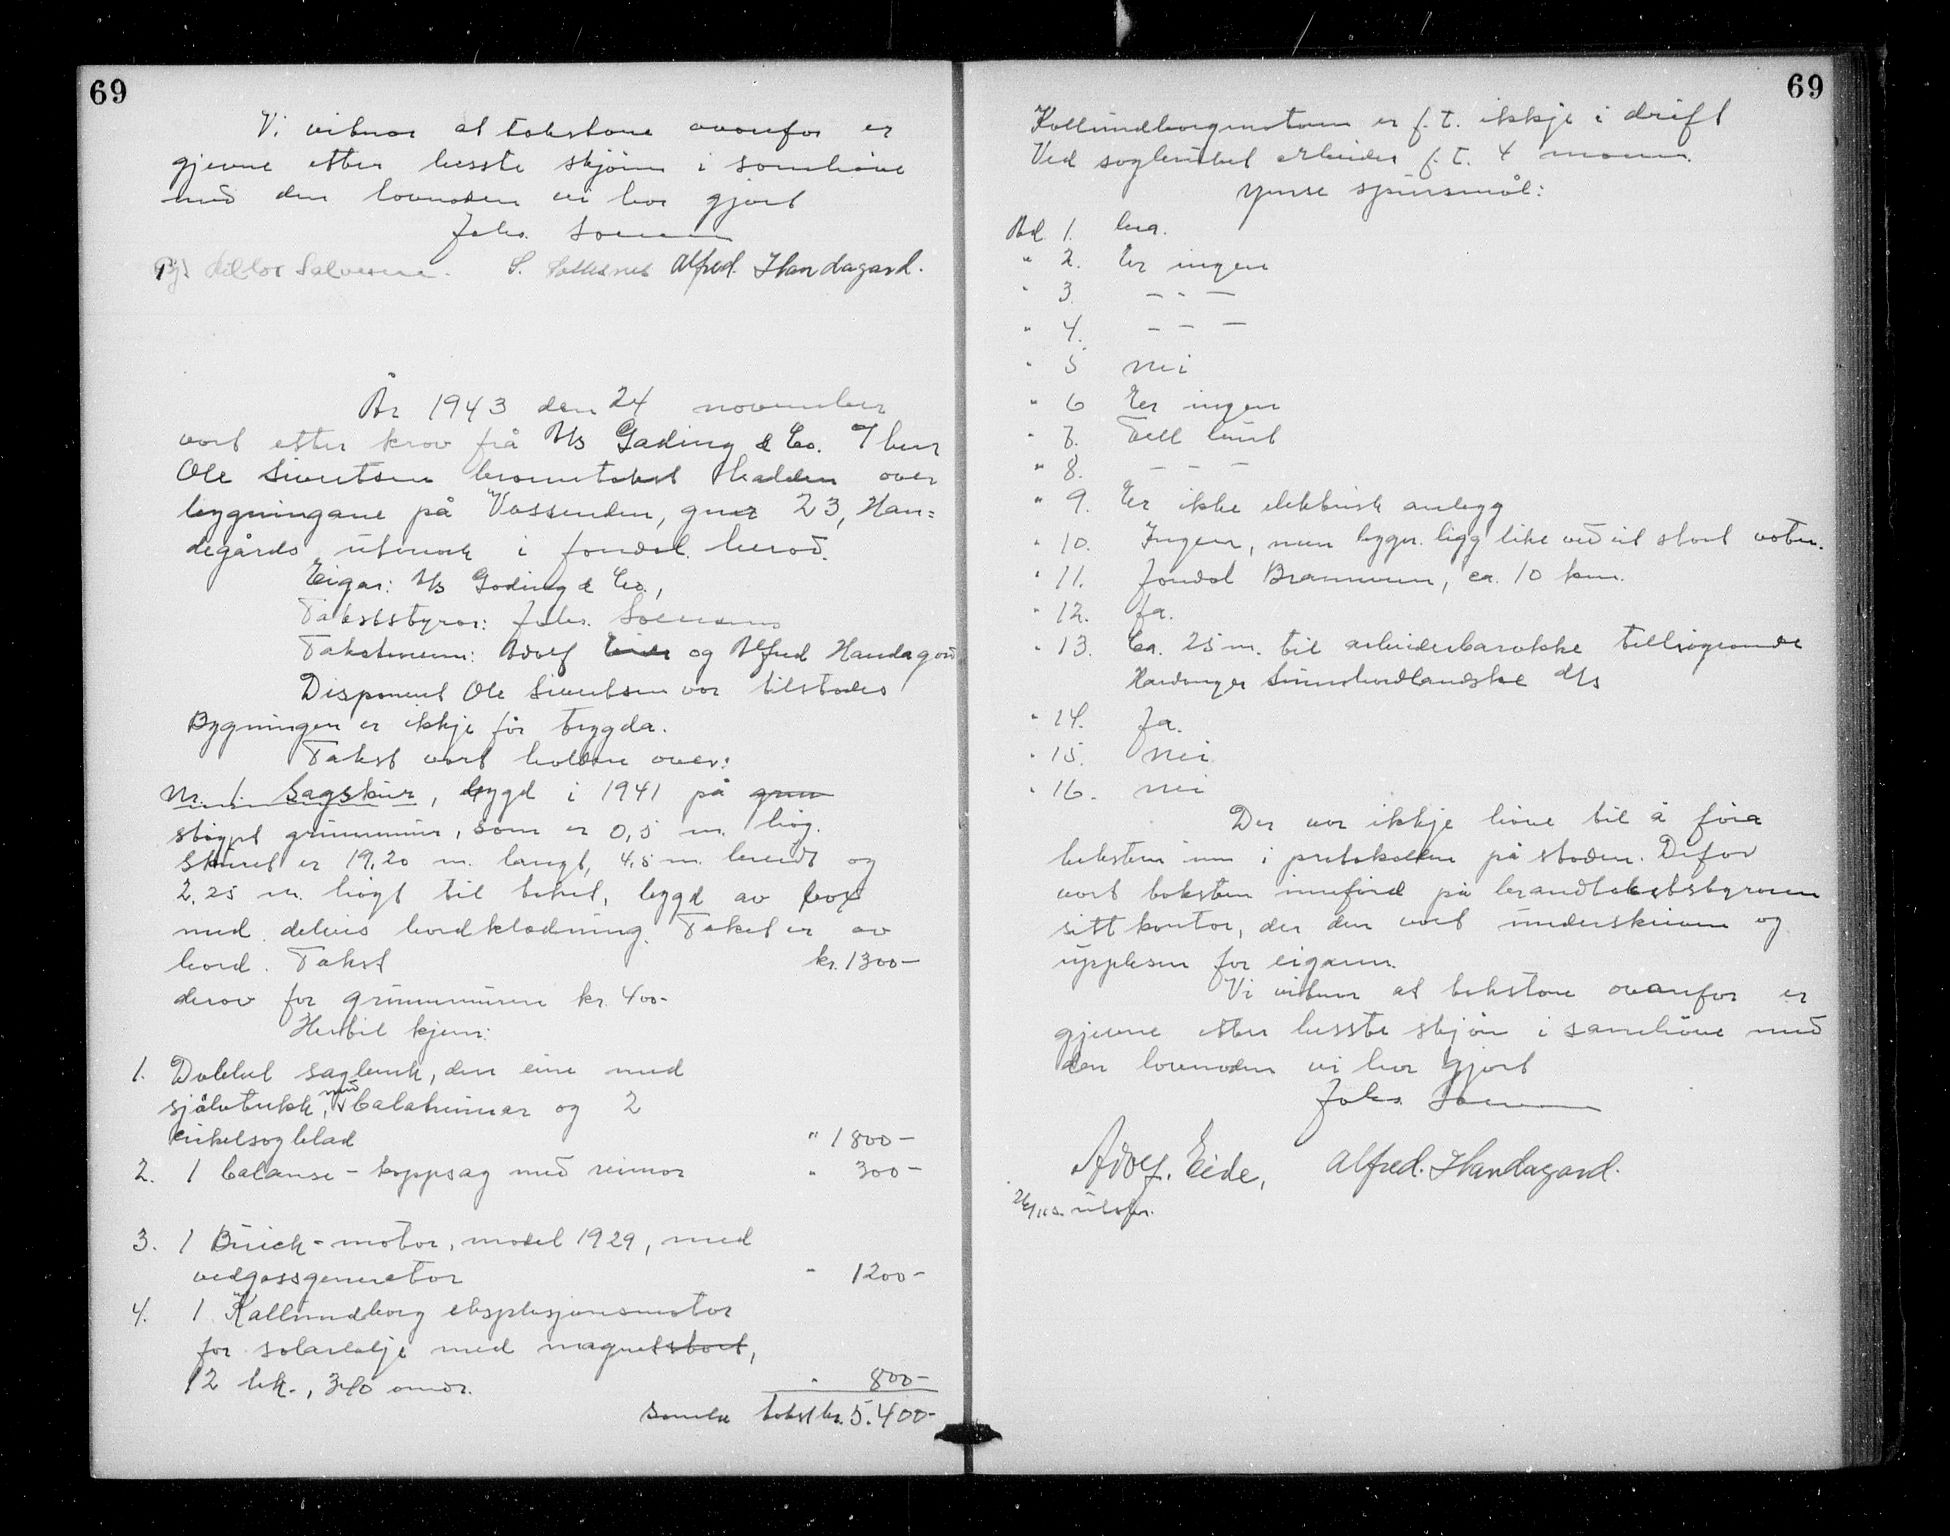 69
Vi vitnar at takstane ovanfor er
gjevne etter besste skjønn i samhøve
med den lovnaden vi har gjort
Johs.
Alfred. Handagard.
År 1943 den 24 november
vart etter krav frå A/s Gading & Co. ved herr
Ole Sivertsen branntakst halden over
bygningane på Vassenden, gnr 23, Han=
degårds utmark i Jondal herad.
Eigar: A/s Gading & Co.,
Takststyrar: Johs.
Takstmenn: Adolf Eide og Alfred Handagard
Disponent Ole Sivertsen var tilstades
Bygningen er ikkje før trygda.
Takst vart halden over:
Nr. 1. Sagskur, bygd i 1941 på grun
støypt grunnmur, som er 0,5 m. høg.
Skuret er 19,20 m. langt, 4,5 m. breidt og
2,25 m. høgt til taket, bygd av
med delvis bordklædning. Taket er av
bord. Takst kr. 1300-
derav for grunnmuren kr. 400-
Hertil kjem:
1. Dobbel sagbenk, den eine med
sjølvtrekk, med balatareimar og 2
sirkelsagblad " 1800-
2. 1 balanse-kappsag med reimar " 300-
3. 1 Buick-motor, model 1929, med
vedgassgenerator " 1200-
4. 1 Kallundborg eksplosjonsmotor
for solarolje med magnetstart,
12 hk., 340 omdr. " 800-
Samla takst kr. 5.400-
69
Kallundborgmotoren er f. t. ikkje i drift
Ved sagbruket arbeider f. t. 4 mann.
Ymse spursmål:
Ad. 1. bra.
" 2. Er ingen
" 3. - " -
" 4. - " -
" 5 Nei
" 6 Er ingen
" 7. Fell burt
" 8. - " -
" 9. Er ikke elektrisk anlegg
" 10. Ingen, men bygn. ligg like ved eit stort vatn.
" 11. Jondal Brannvern, ca. 10 km.
" 12. Ja.
" 13. Ca. 25 m. til arbeiderbarakke tilhøyrande
Hardanger Sunnhordlandske D/s
" 14. Ja.
" 15. Nei
" 16. Nei
Der var ikkje høve til å føra
taksten inn i protokollen på staden. Difor
vart taksten innførd på brandtakststyraren
sitt kontor, der den vart underskriven og
upplesen for eigaren.
Vi vitnar at takstane ovanfor er
gjevne etter besste skjøn i samhøve med
den lovnaden vi har gjort
Johs.
Adolf. Eide, Alfred. Handagard.
utskr.